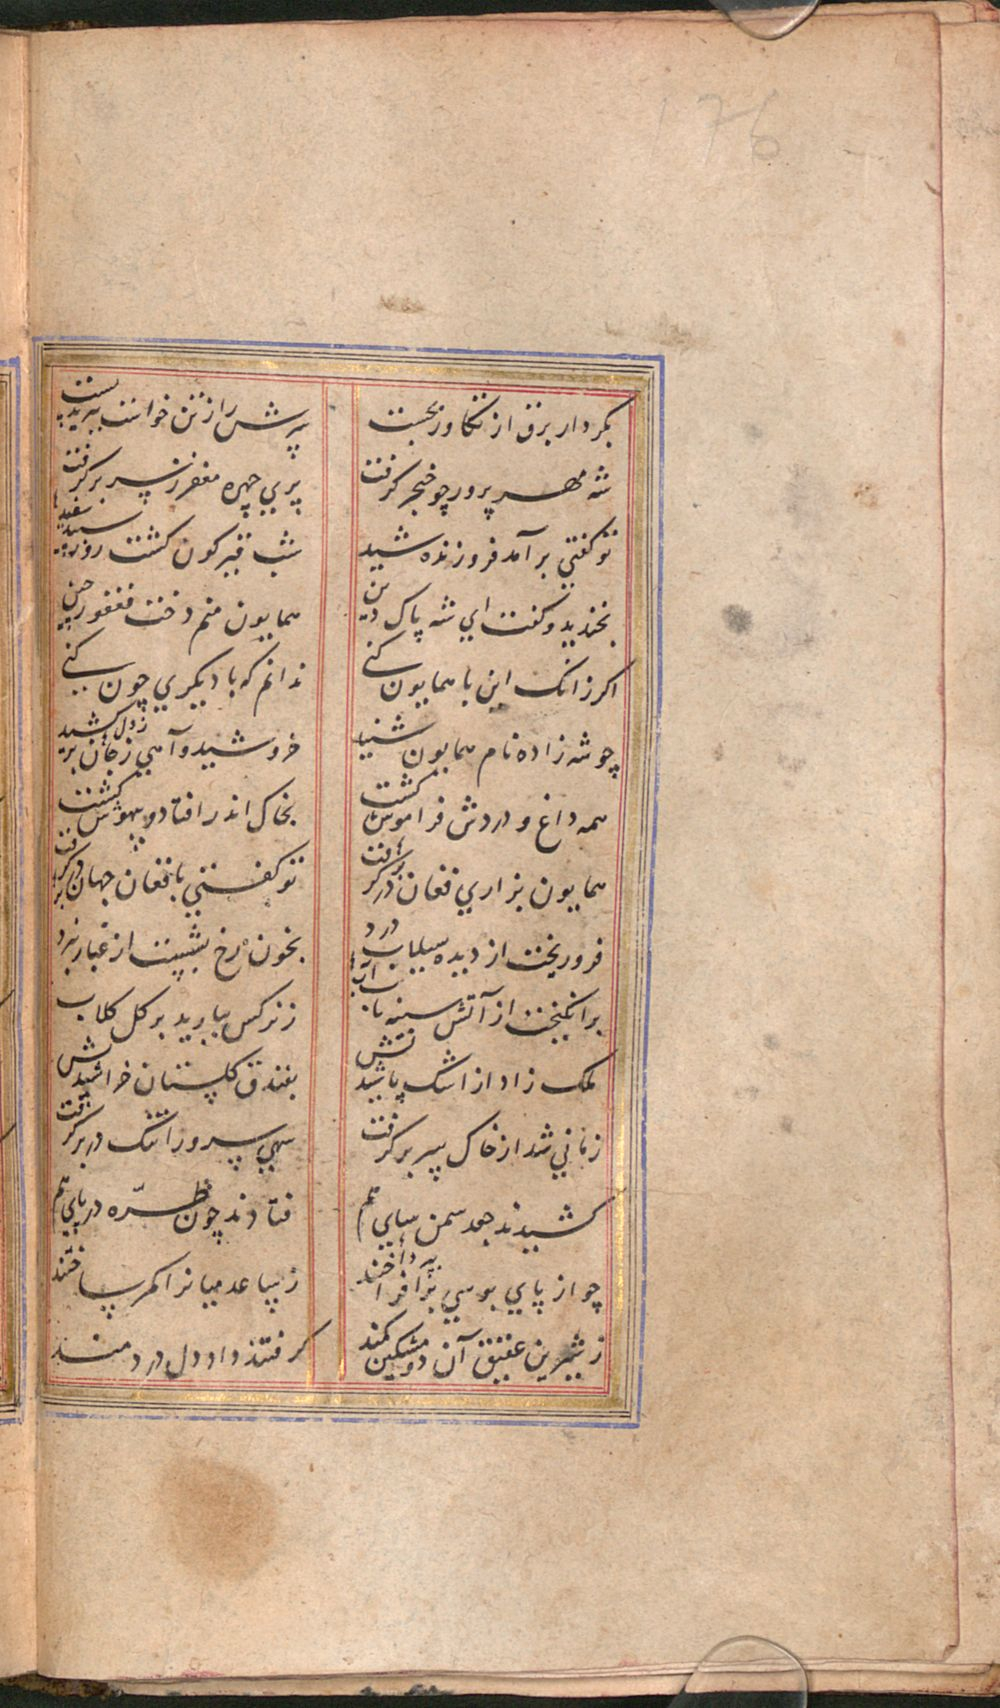 176
بکردار برق از تکاور بجست سرش را ز تن خواست ببرید پست
شه مهر پرور چو خنجر گرفت پری چهره مغفر ز سر بر گرفت
تو گفتی برآمد فروزنده شید شب قیر گون گشت روز سپید
بخندید و گفت ای شه پاک دین همایون منم دخت فغفور چین
اگر زانک این با همایون کنی ندانم که با دیگری چون کنی
چو شه زاده نام همایون شنید خروشید و آهی ز دل برکشید
همه داغ و دردش فراموش گشت بخاک اندر افتاد و بیهوش گشت
همایون بزاری فغان در گرفت تو گفتی با فغان جهان در گرفت
فرو ریخت از دیده سیلاب درد بخون رخ بشست از غبار نبرد
برانگیخت از آتش سینه تاب ز نرکس ببارید بر گل گلاب
ملک زاد از اشک پاشید نش بفندق گلستان خراشیدنش
زمانی شد از خاک سر بر گرفت سهی سرو را تنگ در بر گرفت
کشیدند جعد سمن سای هم فتادند چون طره در پای هم
چو از پای بوسی ز ساعد میانرا کمر ساختند
ز شیرین عقیق آن دو مشکین کمند گرفتند داد دل دردمند